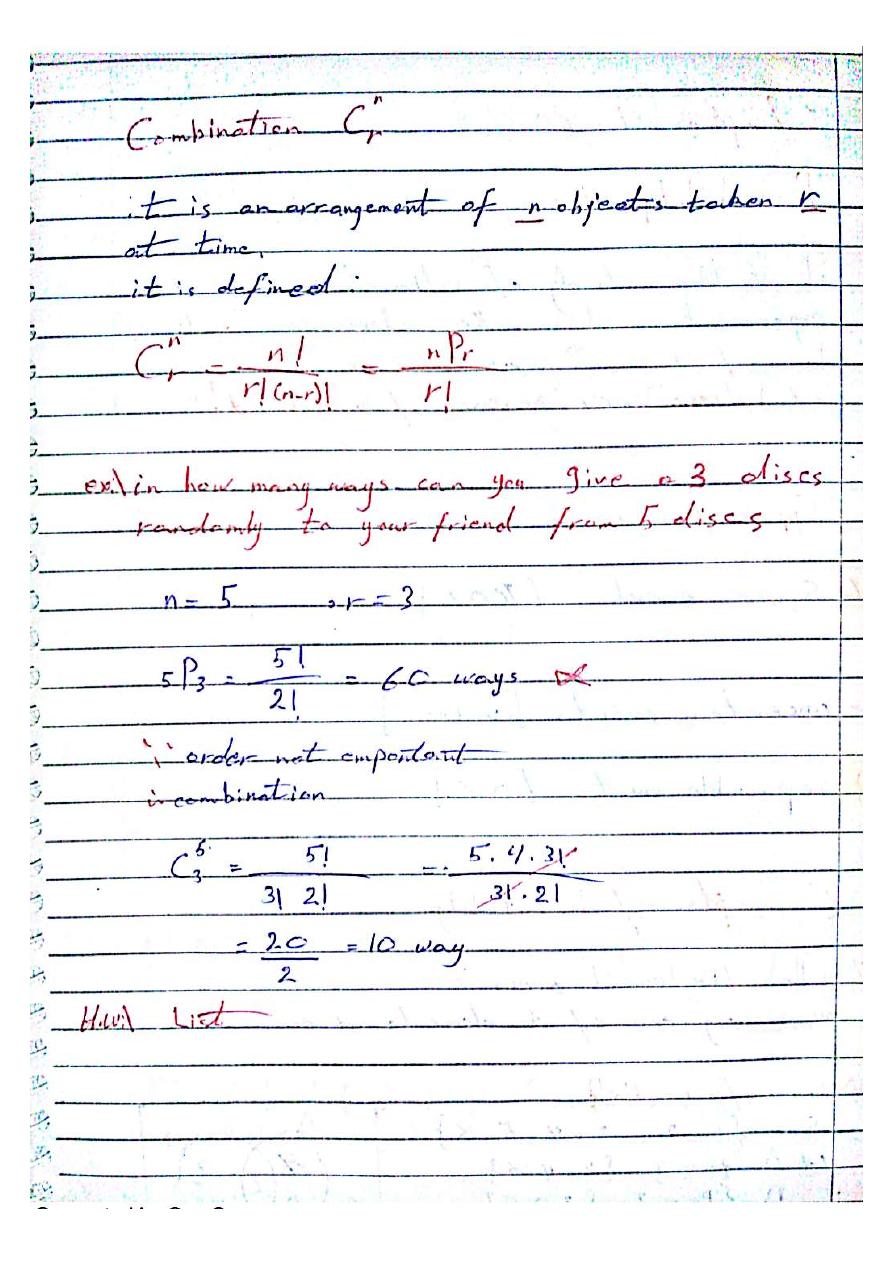 Combination Cⁿᵣ
it is an arrangement of n objects taken r
at time.
it is defined :
Cⁿᵣ = n! / r!(n-r)! = nPr / r!
ex:\ in how many ways can you give a 3 discs
randomly to your friend from 5 discs.
n = 5 , r = 3
5P3 = 5! / 2! = 60 ways
∵ order not empontant
∴ combination
C⁵₃ = 5! / 3! 2! = 5.4.3! / 3!.2!
= 20 / 2 = 10 way
H.w:\ List